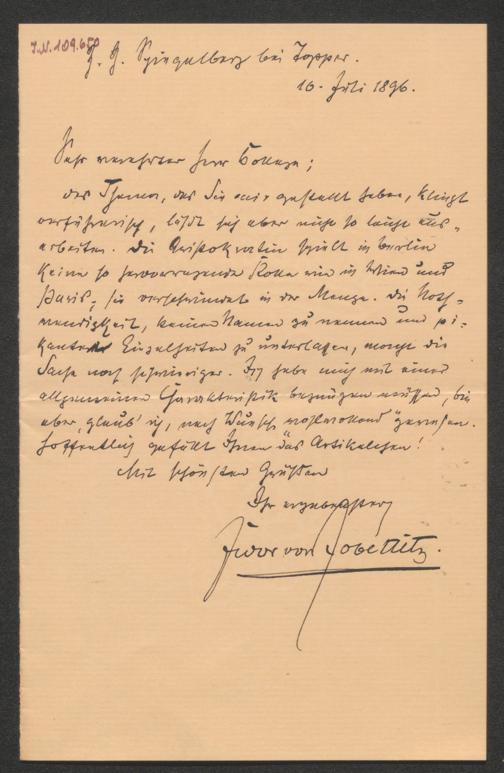 I.N. 109.650
Z. Z. Spiegelberg bei Topper.
16. Juli 1896.
Sehr verehrter Herr College;
das Thema, das Sie mir gestellt haben, klingt
verführerisch, läßt sich aber nicht so leicht aus-
arbeiten. Die Aristokratie spielt in Berlin
keine so hervorragende Rolle wie in Wien und
Paris; sie verschwindet in der Menge. Die Noth-
wendigkeit, keinen Namen zu nennen und pi-
kante Einzelheiten zu unterlassen, macht die
Sache noch schwieriger. Ich habe mich mit einer
allgemeinen Charakteristik begnügen müssen, bin
aber, glaub' ich, nach Wunsch „wohlwollend" gewesen.
Hoffentlich gefällt Ihnen das Artikelchen!
Mit schönsten Grüßen
Ihr ergebenster
Fedor von Zobeltitz.